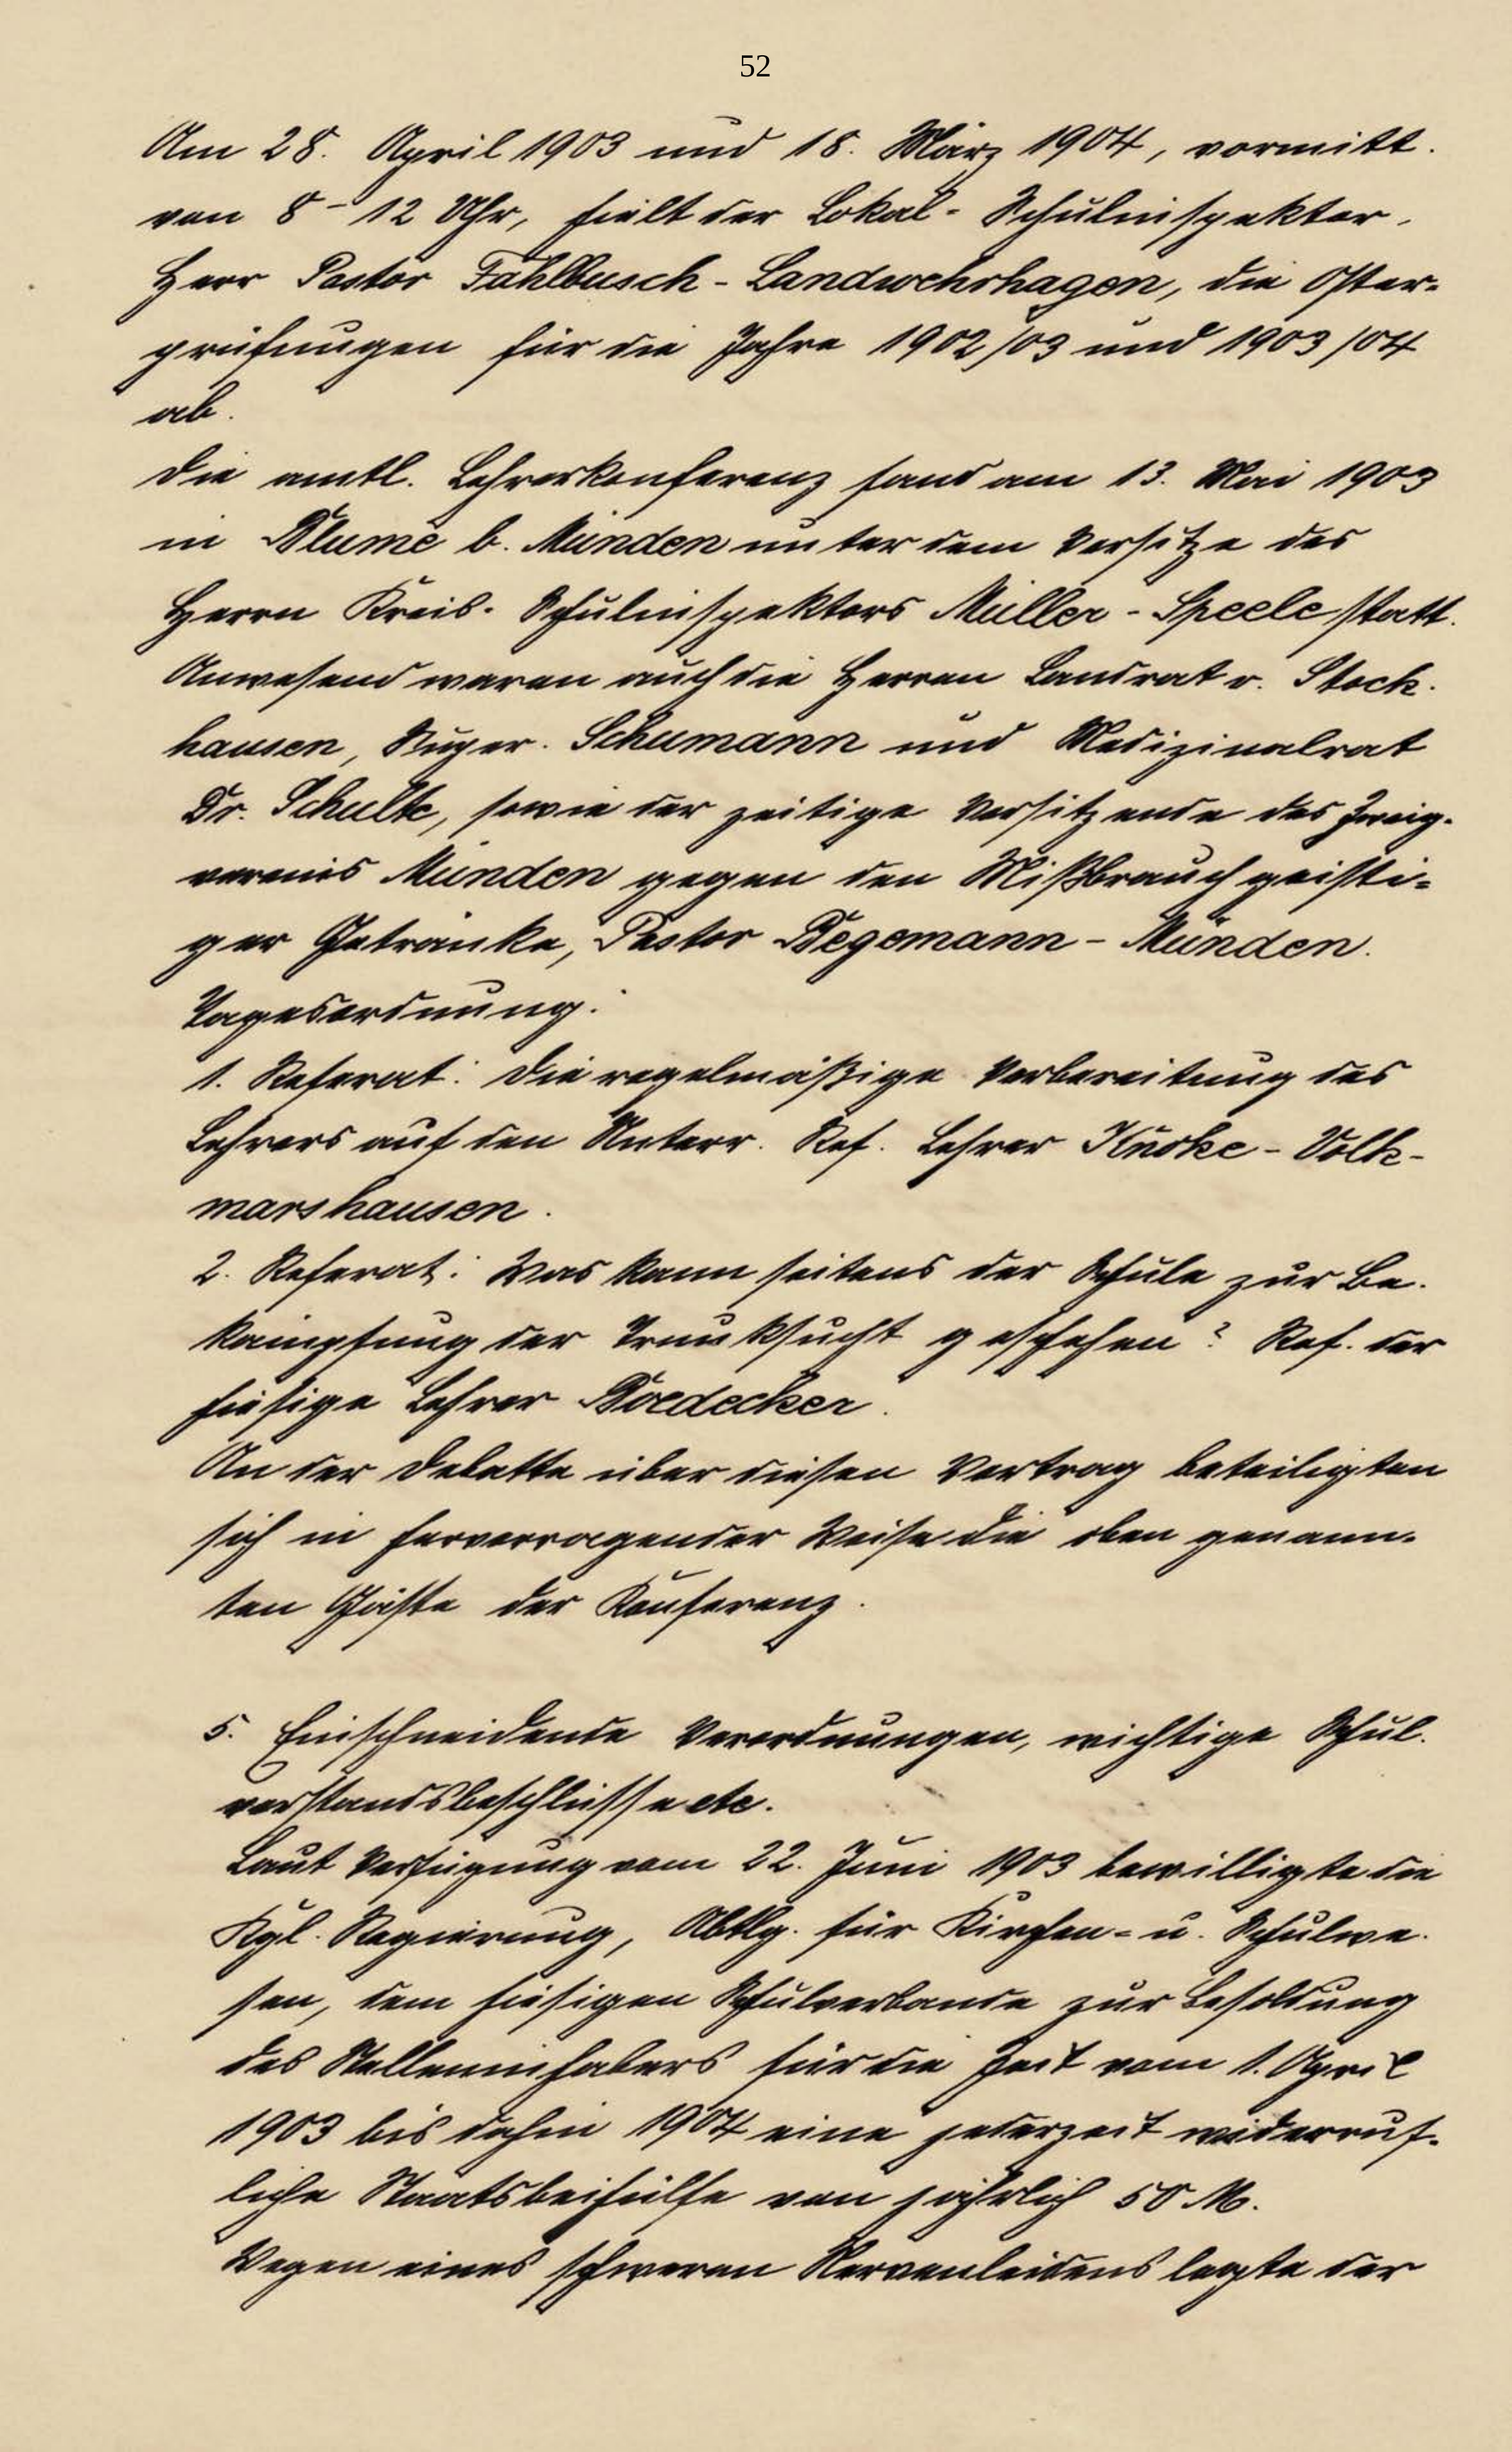 52
Am 28. April 1903 und 18. März 1904, vormitt.
von 8 - 12 Uhr, hielt der Lokal-Schulinspektor,
Herr Pastor Fahlbusch - Landwehrhagen, die Oster-
prüfungen für die Jahre 1902/03 und 1903/04
ab.
Die amtl. Lehrerkonferenz fand am 13. Mai 1903
in Blume b. Münden unter dem Vorsitze des
Herrn Kreis-Schulinspektors Müller - Speele statt.
Anwesend waren auch die Herren Landrat v. Stock-
hausen, Super. Schumann und Medizinalrat
Dr. Schulte, sowie der zeitige Vorsitzende des Zweig-
vereins Münden gegen den Mißbrauch geisti-
ger Getränke, Pastor Degemann - Münden.
Tagesordnung:
1. Referat: Die regelmäßige Vorbereitung des
Lehrers auf den Unterr. Ref. Lehrer Knoke - Volk-
marshausen.
2. Referat: Was kann seitens der Schule zur Be-
kämpfung der Trunksucht geschehen? Ref. der
hiesige Lehrer Boedecker.
An der Debatte über diesen Vortrag beteiligten
sich in hervorragender Weise die oben genann-
ten Gäste der Konferenz.
5. Einschneidende Verordnungen, wichtige Schul-
vorstandsbeschlüsse etc.
Laut Verfügung vom 22. Juni 1903 bewilligte die
Kgl. Regierung, Abtlg. für Kirchen- u. Schulwe-
sen, dem hiesigen Schulverbande zur Besoldung
des Stelleninhabers für die Zeit vom 1. April
1903 bis dahin 1904 eine jederzeit widerruf-
liche Staatsbeihülfe von jährlich 50 M.
Wegen eines schweren Nervenleidens legte der